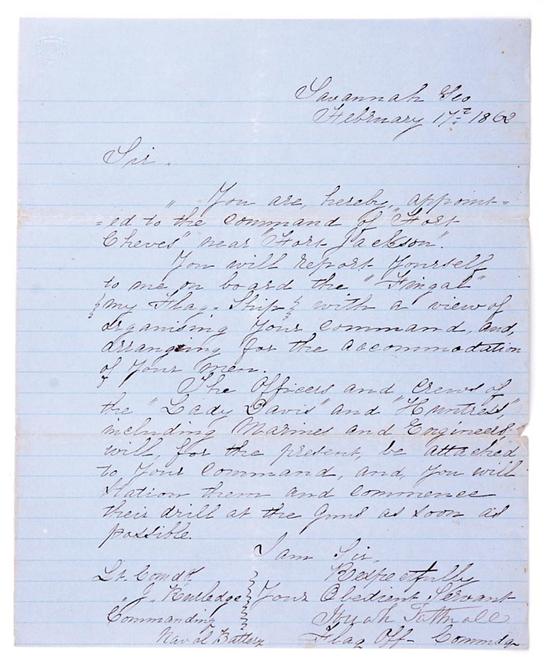 Savannah Geo
February 17th 1862
Sir.
" You are, hereby, appoint-
-ed to the command of "Fort
Cheves" near "Fort Jackson".
You will report yourself
to me on board the "Fingal"
(my Flag Ship) with a view of
organising your command, and,
arranging for the accommodation
of your men.
The Officers and Crews of
the "Lady Davis" and "Huntress",
including Marines and Engineers,
will, for the present, be attached
to your command, and, you will
station them and commence
their drill at the guns as soon as
possible.
I am Sir,
Respectfully
Your Obedient Servant
Josiah Tattnall
Flag Off- Commdg
Lt. Comdt
" J. Rutledge
Commanding
Naval Battery